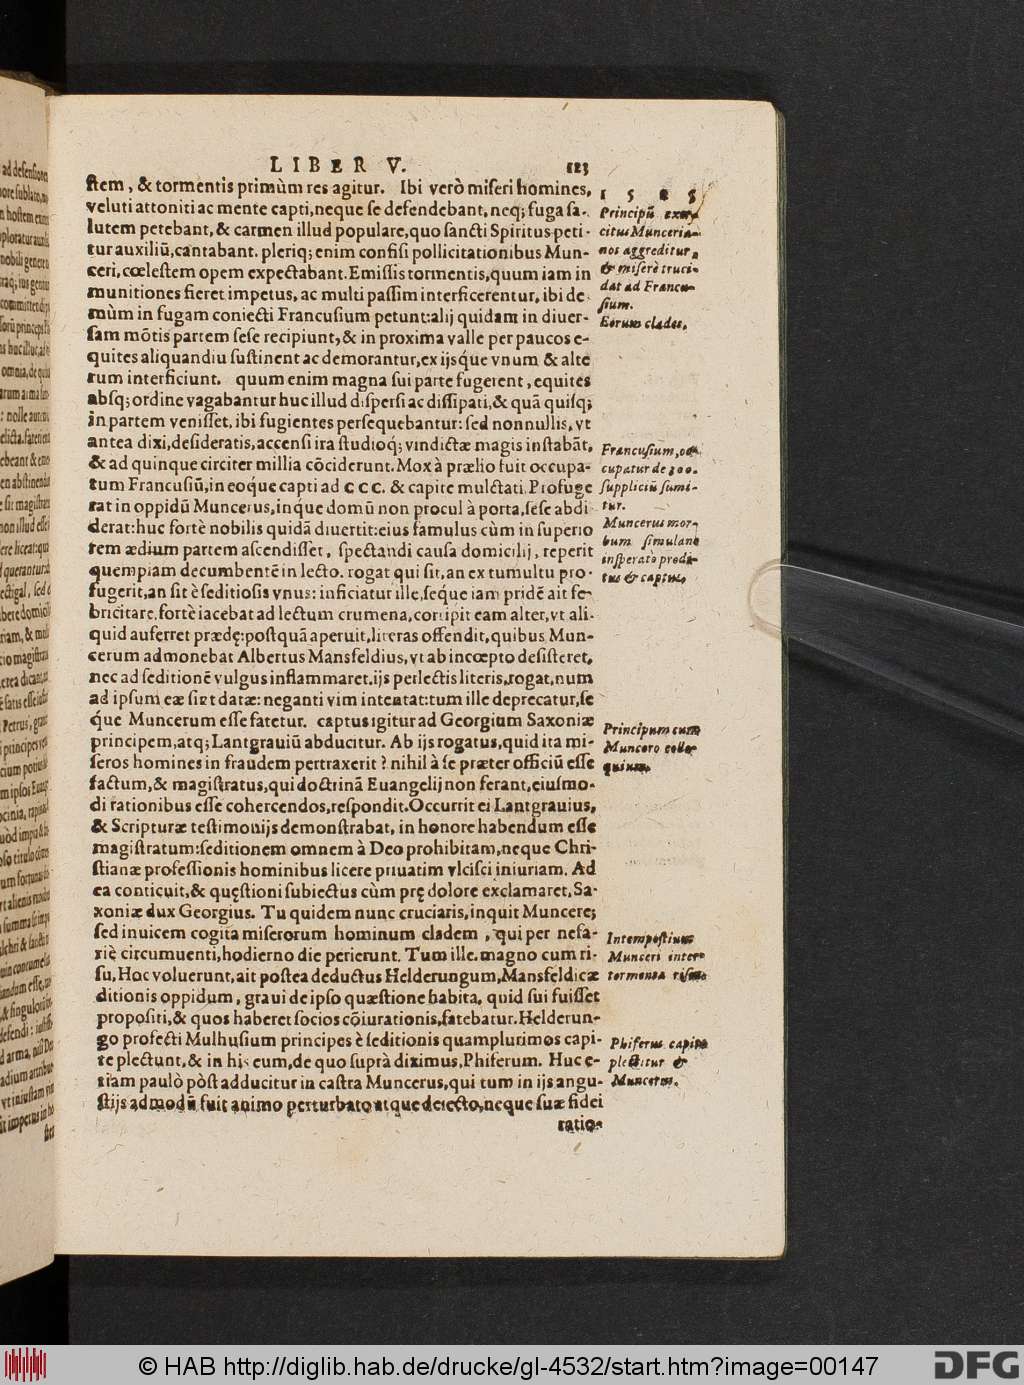 LIBER V. 123
ſtem, & tormentis primùm res agitur. Ibi verò miſeri homines,
veluti attoniti ac mente capti, neque ſe defendebant, neq; fuga ſa-
lutem petebant, & carmen illud populare, quo ſancti Spiritus peti-
tur auxiliū, cantabant. pleriq; enim confiſi pollicitationibus Mun-
ceri, cœleſtem opem expectabant. Emiſſis tormentis, quum iam in
munitiones fieret impetus, ac multi paſſim interficerentur, ibi de
mùm in fugam coniecti Francuſium petunt: alij quidam in diuer-
ſam mōtis partem ſeſe recipiunt, & in proxima valle per paucos e-
quites aliquandiu ſuſtinent ac demorantur, ex ijsq́ue vnum & alte
rum interficiunt. quum enim magna ſui parte fugerent, equites
absq; ordine vagabantur huc illud diſperſi ac diſſipati, & quā quiſq;
in partem veniſſet, ibi fugientes perſequebantur: ſed nonnullis, vt
antea dixi, deſideratis, accenſi ira ſtudioq́; vindictæ magis inſtabāt,
& ad quinque circiter millia cōciderunt. Mox à prælio fuit occupa-
tum Francuſiū, in eoque capti ad CCC. & capite mulctati. Profuge
rat in oppidū Muncerus, inque domū non procul à porta, ſeſe abdi
derat: huc fortè nobilis quidā diuertit: eius famulus cùm in ſuperio
rem ædium partem aſcendiſſet, ſpectandi cauſa domicilij, reperit
quempiam decumbentē in lecto. rogat qui ſit, an ex tumultu pro-
fugerit, an ſit è ſeditioſis vnus: inficiatur ille, ſeque iam pridē ait fe-
bricitare. fortè iacebat ad lectum crumena, corripit eam alter, vt ali-
quid auferret prædę: poſtquā aperuit, literas offendit, quibus Mun-
cerum admonebat Albertus Mansfeldius, vt ab incœpto deſiſteret,
nec ad ſeditionē vulgus inflammaret. ijs perlectis literis, rogat, num
ad ipſum eæ ſint datæ: neganti vim intentat: tum ille deprecatur, ſe
q́ue Muncerum eſſe fatetur. captus igitur ad Georgium Saxoniæ
principem, atq; Lantgrauiū abducitur. Ab ijs rogatus, quid ita mi-
ſeros homines in fraudem pertraxerit? nihil à ſe præter officiū eſſe
factum, & magiſtratus, qui doctrinā Euangelij non ferant, eiuſmo-
di rationibus eſſe cohercendos, reſpondit. Occurrit ei Lantgrauius,
& Scripturæ teſtimonijs demonſtrabat, in honore habendum eſſe
magiſtratum: ſeditionem omnem à Deo prohibitam, neque Chri-
ſtianæ profeſſionis hominibus licere priuatim vlciſci iniuriam. Ad
ea conticuit, & quęſtioni ſubiectus cùm prę dolore exclamaret, Sa-
xoniæ dux Georgius. Tu quidem nunc cruciaris, inquit Muncere;
ſed inuicem cogita miſerorum hominum cladem, qui per nefa-
riè circumuenti, hodierno die perierunt. Tum ille. magno cum ri-
ſu, Hoc voluerunt, ait poſtea deductus Helderungum, Mansfeldicæ
ditionis oppidum, graui de ipſo quæſtione habita, quid ſui fuiſſet
propoſiti, & quos haberet ſocios cōiurationis, fatebatur. Helderun-
go profecti Mulhuſium principes è ſeditionis quamplurimos capi-
te plectunt, & in his eum, de quo ſuprà diximus, Phiferum. Huc e-
tiam paulò pòſt adducitur in caſtra Muncerus, qui tum in ijs angu-
ſtijs admodū fuit animo perturbato atque deiecto, neque ſuæ fidei
ratio-
1 5 2 5
Principū exer-
citus Munceria-
nos aggreditur,
& miſerè truci-
dat ad Francu-
ſium.
Eorum clades.
Francuſium, oc-
cupatur de 300.
ſuppliciū ſumi-
tur.
Muncerus mor-
bum ſimulans
inſperatò prodi-
tus & captus.
Principum cum
Muncero collo-
quium.
Intempeſtiuus
Munceri inter
tormenta riſus.
Phiferus capite
plectitur &
Muncerus.
© HAB http://diglib.hab.de/drucke/gl-4532/start.htm?image=00147
DFG